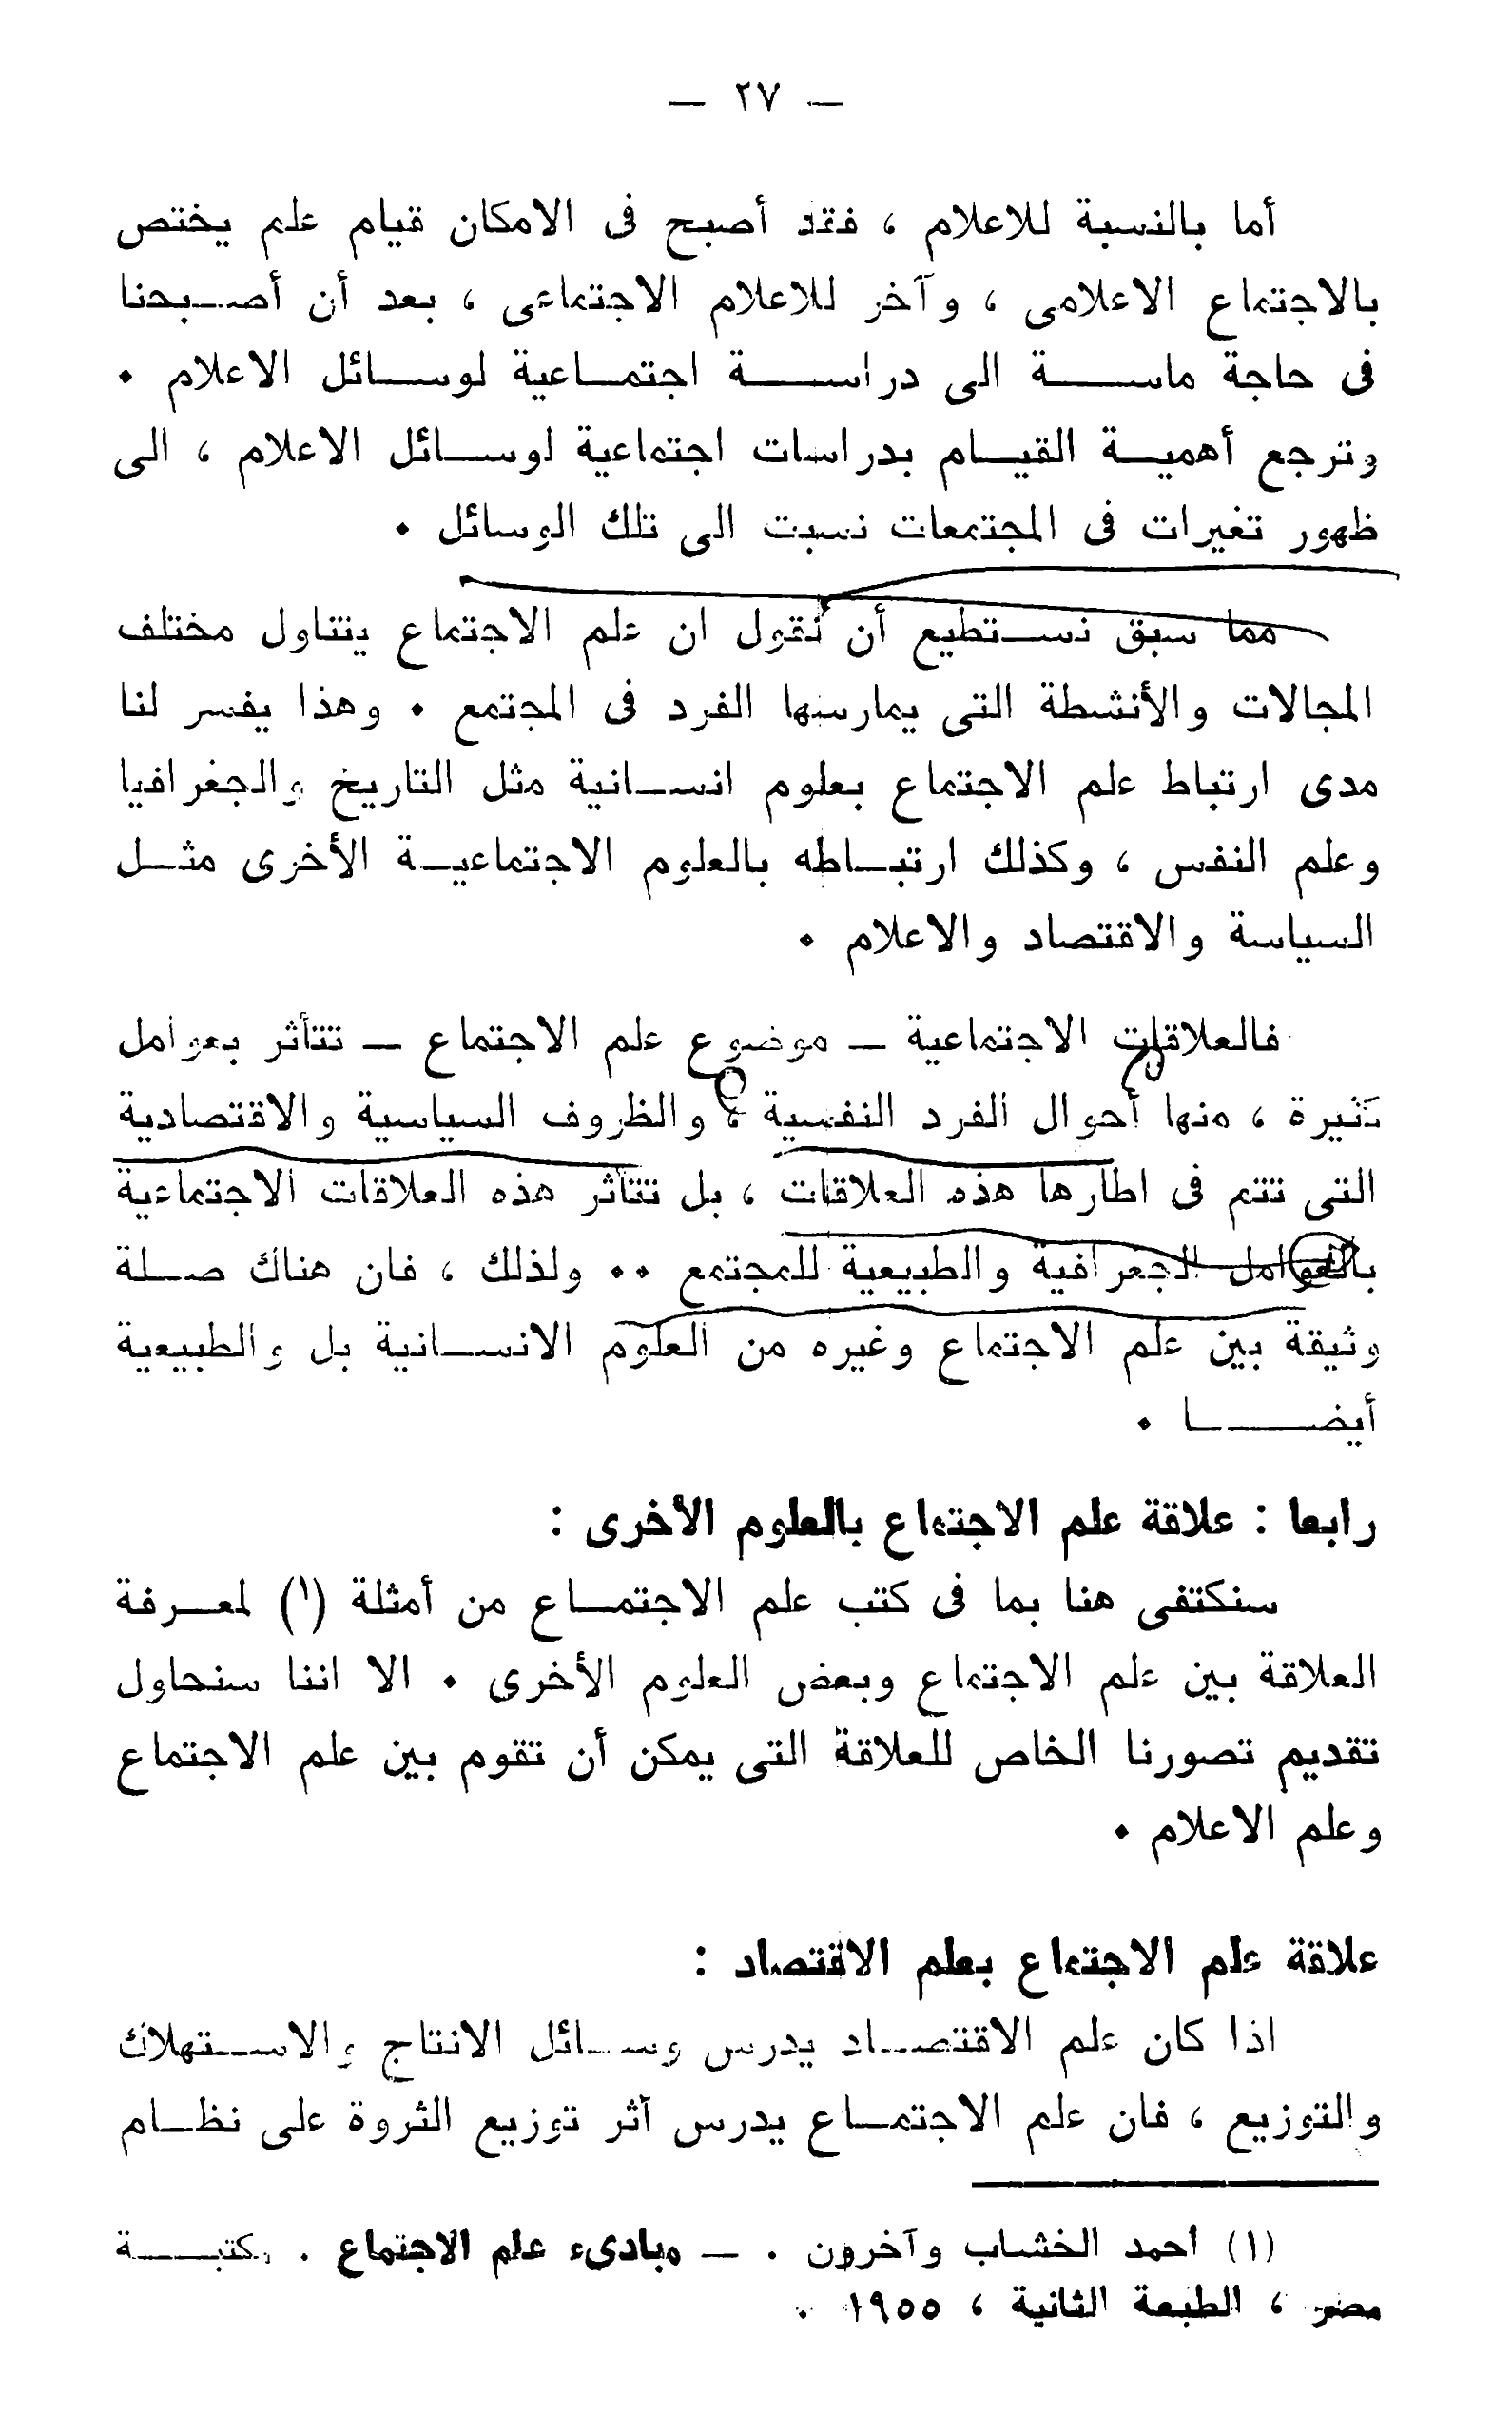 — ٢٧ —
أما بالنسبة للاعلام ، فقد أصبح فى الامكان قيام علم يختص
بالاجتماع الاعلامى ، وآخر للاعلام الاجتماعى ، بعد أن أصبحنا
فى حاجة ماسة الى دراسة اجتماعية لوسائل الاعلام .
وترجع أهمية القيام بدراسات اجتماعية لوسائل الاعلام ، الى
ظهور تغيرات فى المجتمعات نسبت الى تلك الوسائل .
مما سبق نستطيع أن نقول ان علم الاجتماع يتناول مختلف
المجالات والأنشطة التى يمارسها الفرد فى المجتمع . وهذا يفسر لنا
مدى ارتباط علم الاجتماع بعلوم انسانية مثل التاريخ والجغرافيا
وعلم النفس ، وكذلك ارتباطه بالعلوم الاجتماعية الأخرى مثل
السياسة والاقتصاد والاعلام .
فالعلاقات الاجتماعية — موضوع علم الاجتماع — تتأثر بعوامل
كثيرة ، منها أحوال الفرد النفسية ، والظروف السياسية والاقتصادية
التى تتم فى اطارها هذه العلاقات ، بل تتأثر هذه العلاقات الاجتماعية
بالعوامل الجغرافية والطبيعية للمجتمع .. ولذلك ، فان هناك صلة
وثيقة بين علم الاجتماع وغيره من العلوم الانسانية بل والطبيعية
أيضا .
رابعا : علاقة علم الاجتماع بالعلوم الأخرى :
سنكتفى هنا بما فى كتب علم الاجتماع من أمثلة (١) لمعرفة
العلاقة بين علم الاجتماع وبعض العلوم الأخرى . الا اننا سنحاول
تقديم تصورنا الخاص للعلاقة التى يمكن أن تقوم بين علم الاجتماع
وعلم الاعلام .
علاقة علم الاجتماع بعلم الاقتصاد :
اذا كان علم الاقتصاد يدرس وسائل الانتاج والاستهلاك
والتوزيع ، فان علم الاجتماع يدرس آثر توزيع الثروة على نظام
(١) أحمد الخشاب وآخرون . — مبادىء علم الاجتماع . مكتبة
مصر ، الطبعة الثانية ، ١٩٥٥ .